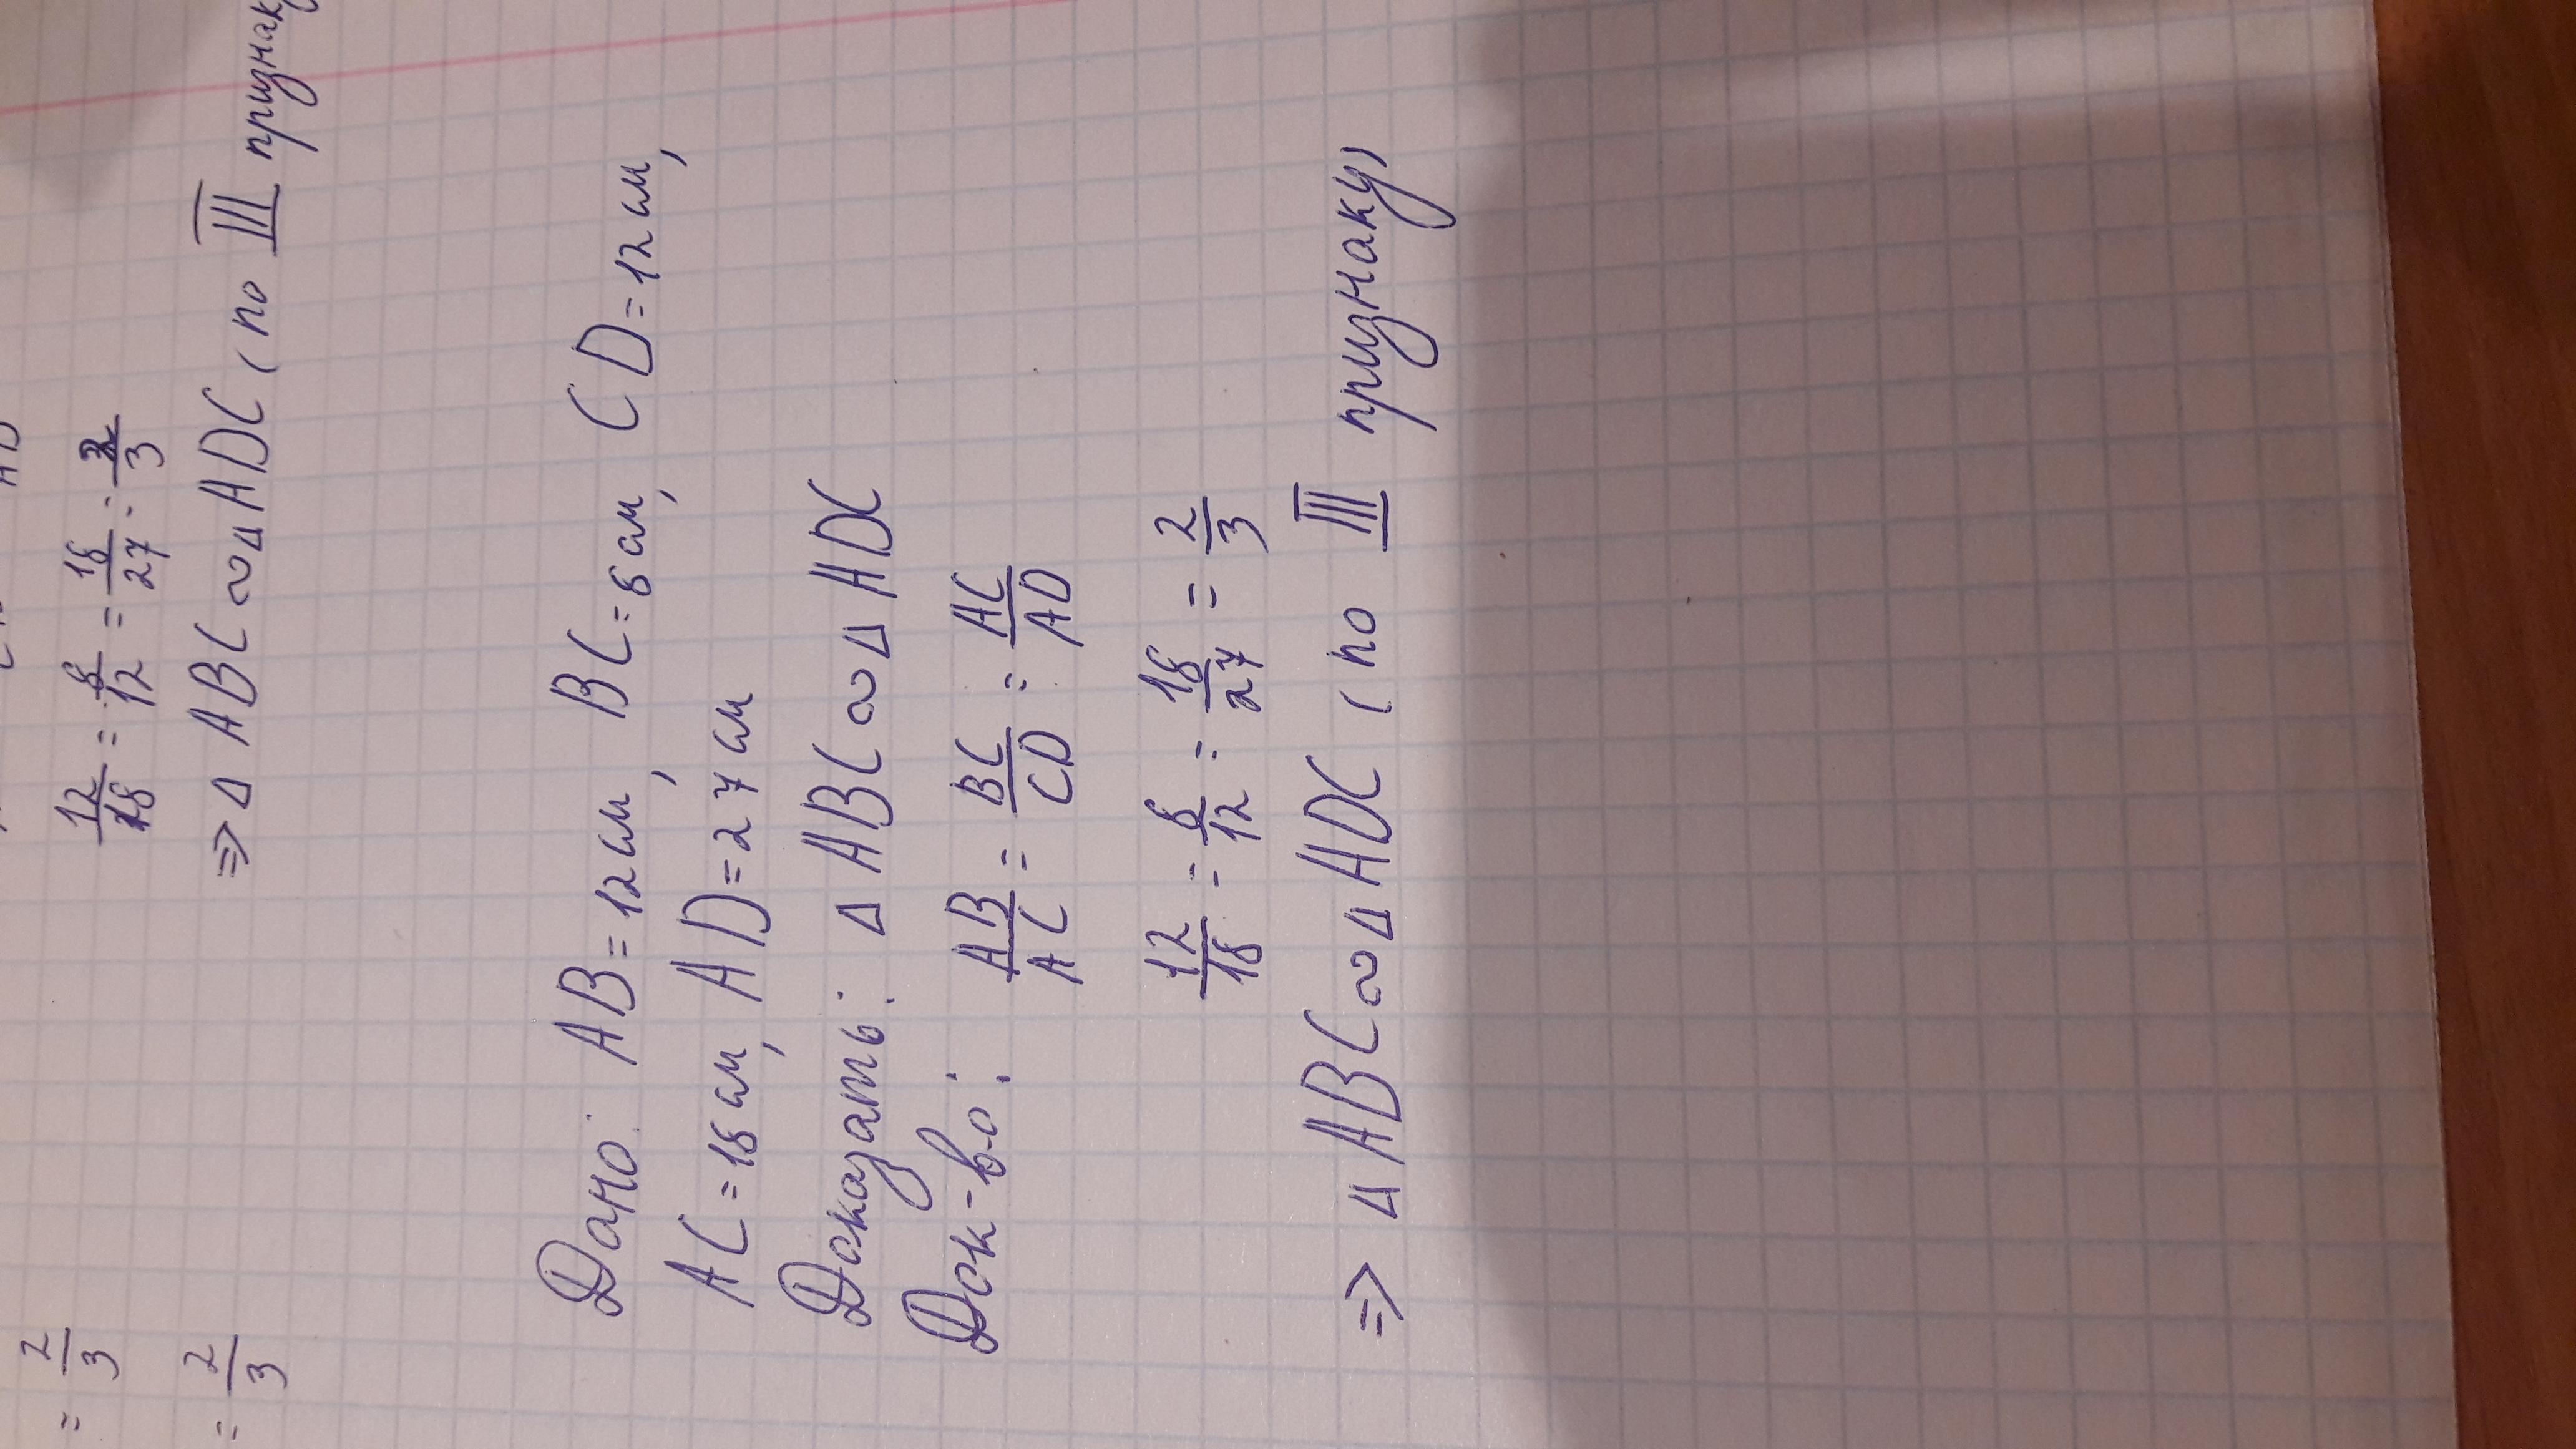 = 2/3
= 2/3
12/18 = 8/12 = 18/27 = 2/3
=> △ ABC ∾ △ ADC (по III признак
Дано: AB = 12 см, BC = 8 см, CD = 12 см,
AC = 18 см, AD = 27 см
Доказать: △ ABC ∾ △ ADC
Док-во: AB/AC = BC/CD = AC/AD
12/18 = 8/12 = 18/27 = 2/3
=> △ ABC ∾ △ ADC (по III признаку)